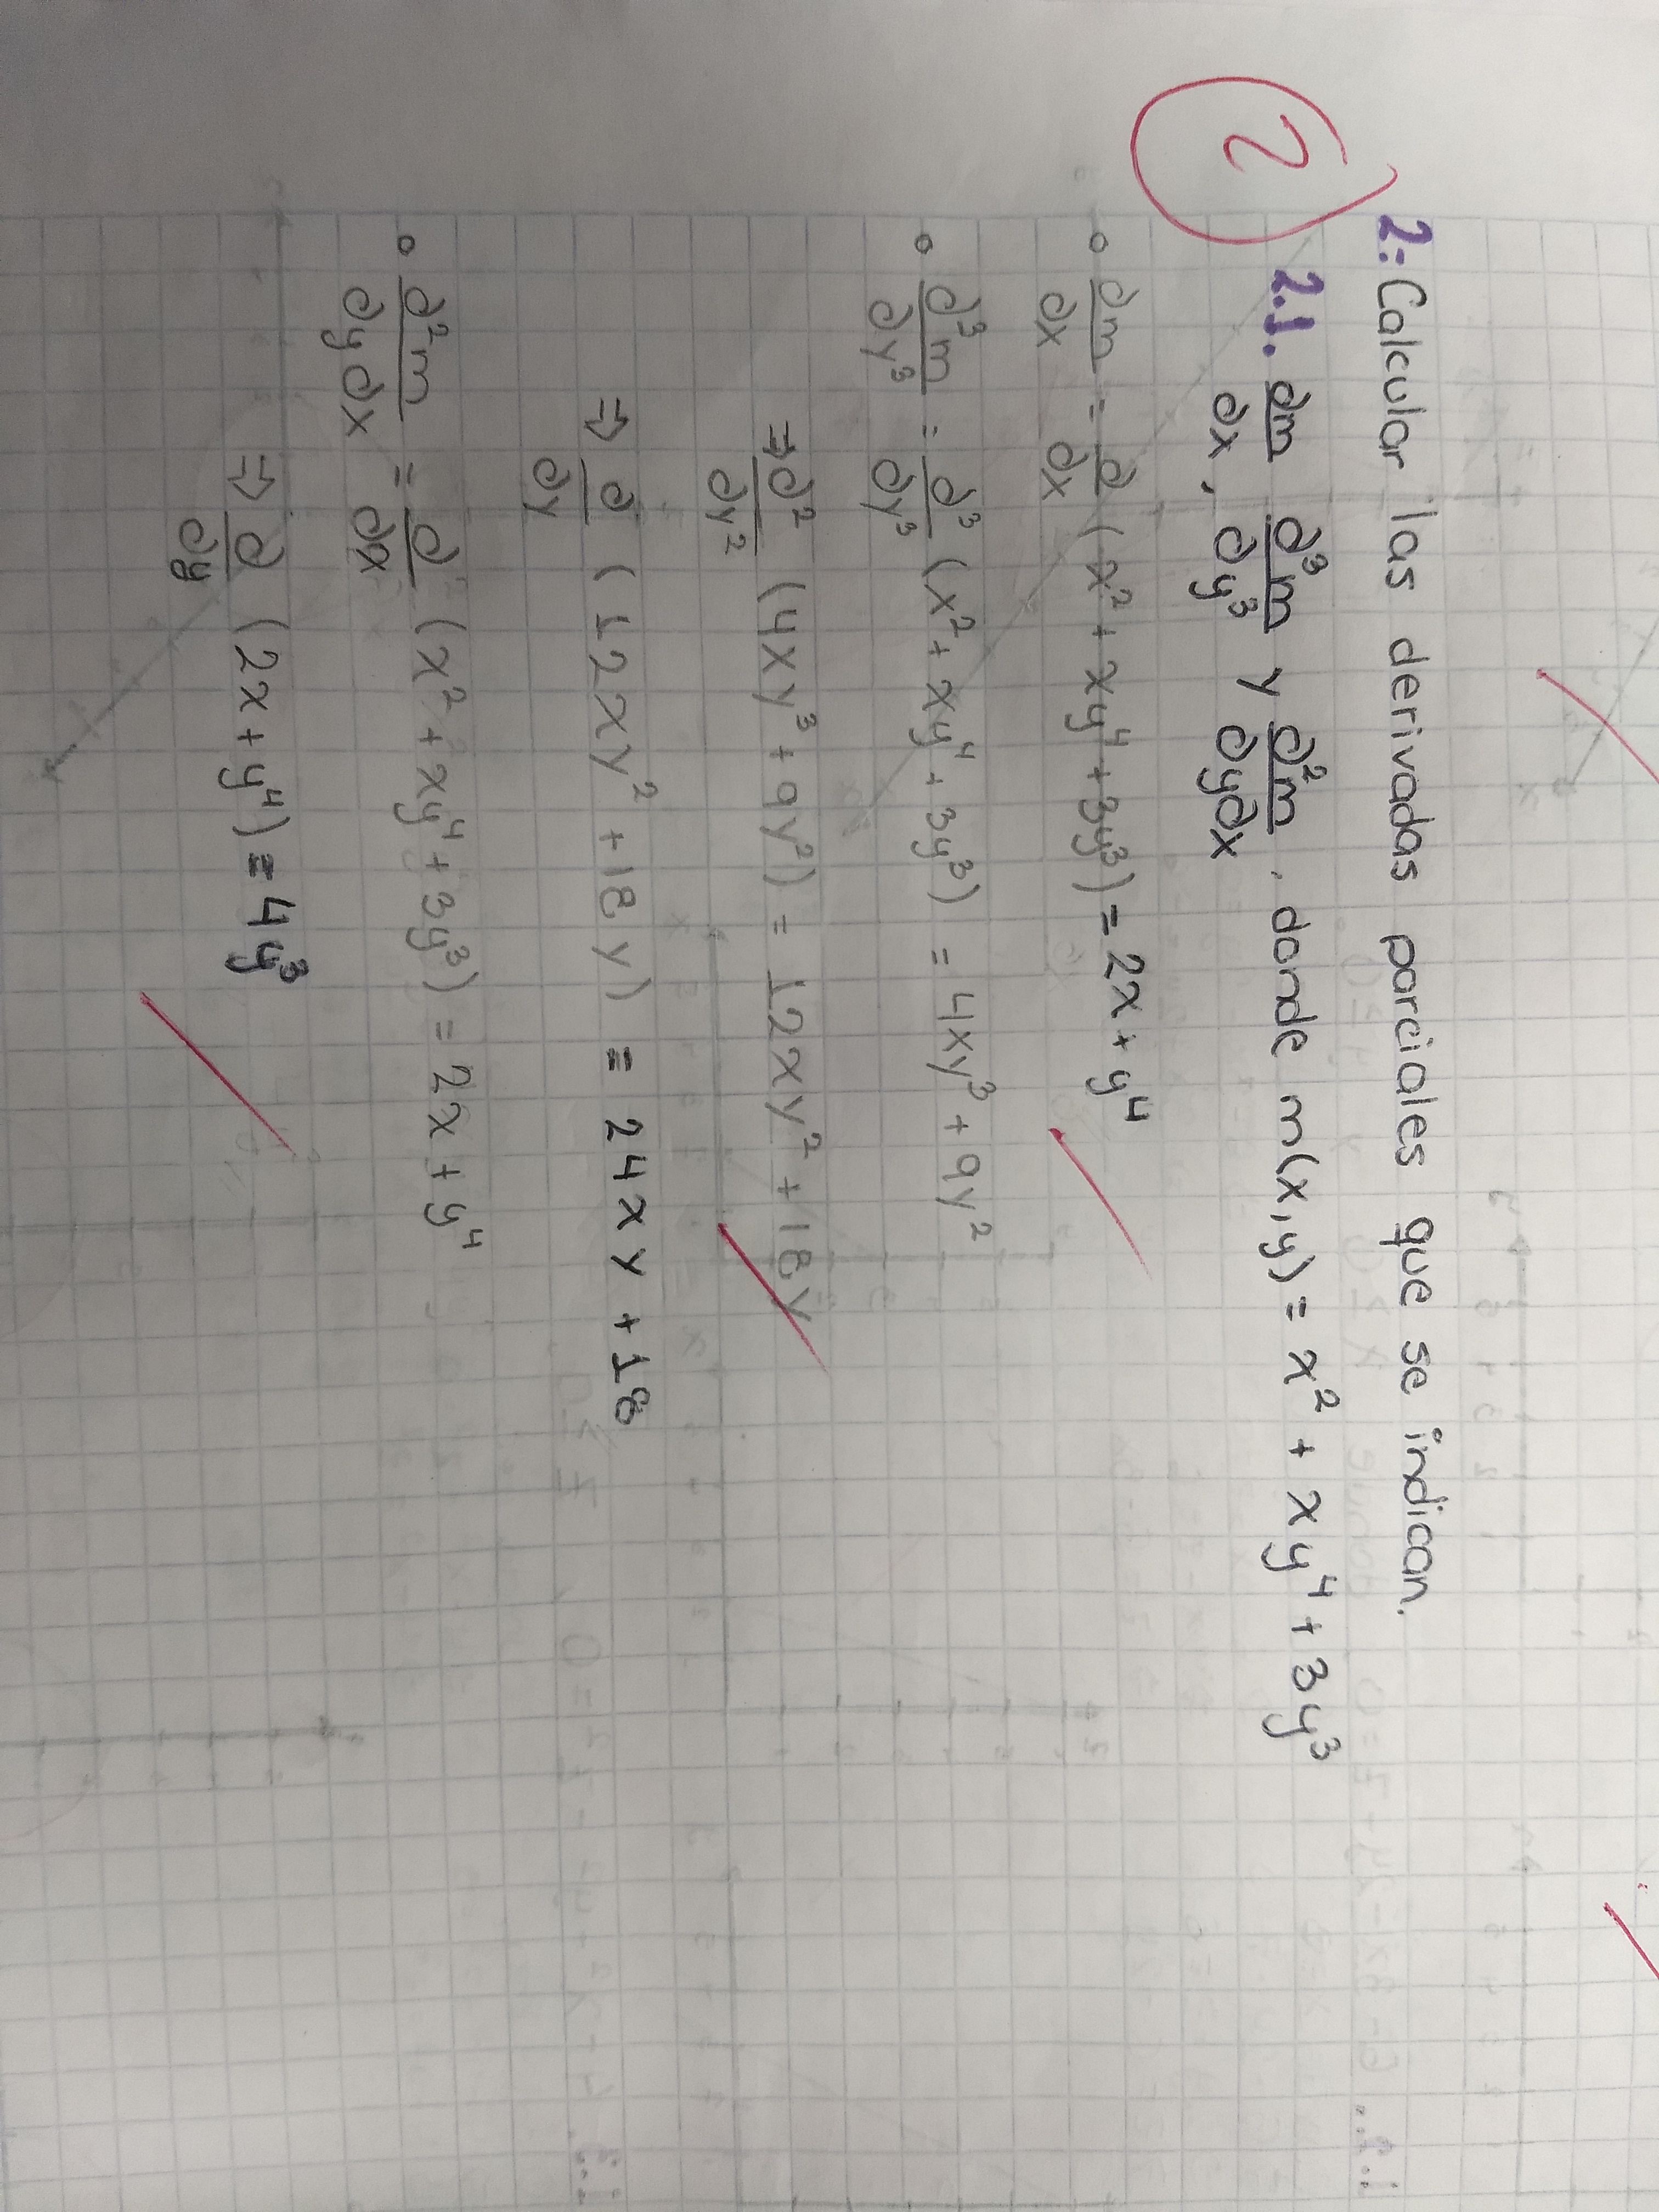 2: Calcular las derivadas parciales que se indican.
2
2.1. ∂m/∂x, ∂³m/∂y³ y ∂²m/∂y∂x, donde m(x,y) = x² + xy⁴ + 3y³
∂m/∂x = ∂/∂x (x² + xy⁴ + 3y³) = 2x + y⁴
∂³m/∂y³ = ∂³/∂y³ (x² + xy⁴ + 3y³) = 4xy³ + 9y²
⇒ ∂²/∂y² (4xy³ + 9y²) = 12xy² + 18y
⇒ ∂/∂y (12xy² + 18y) = 24xy + 18
∂²m/∂y∂x = ∂/∂x (x² + xy⁴ + 3y³) = 2x + y⁴
⇒ ∂/∂y (2x + y⁴) = 4y³